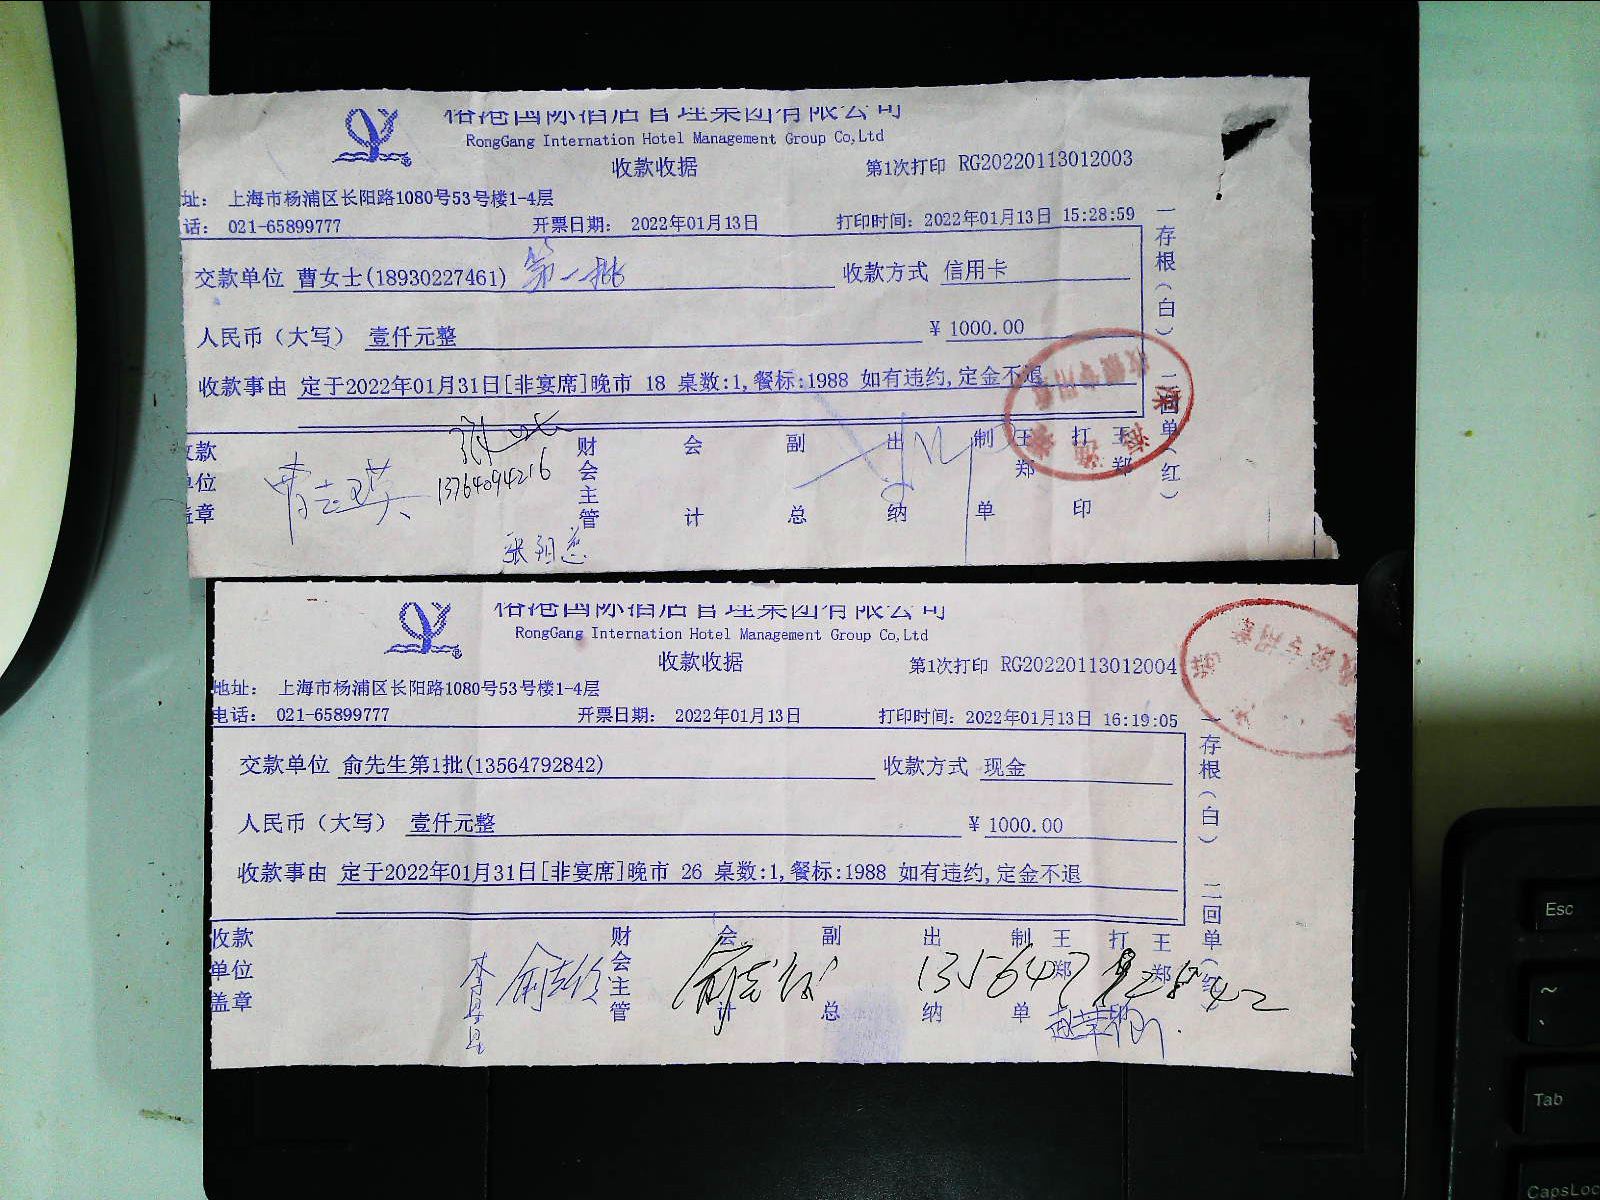 榕港国际酒店管理集团有限公司
RongGang Internation Hotel Management Group Co,Ltd
收款收据
第1次打印 RG20220113012003
址: 上海市杨浦区长阳路1080号53号楼1-4层
话: 021-65899777 开票日期: 2022年01月13日 打印时间: 2022年01月13日 15:28:59
交款单位 曹女士(18930227461) 第一批 收款方式 信用卡
人民币(大写) 壹仟元整 ¥ 1000.00
收款事由 定于2022年01月31日[非宴席]晚市 18 桌数:1,餐标:1988 如有违约,定金不退
一存根(白) 二回单(红)
收款单位盖章 财会主管 会计 副总 出纳 制单 王郑 打印 王郑
13764094216
榕港国际酒店管理集团有限公司
RongGang Internation Hotel Management Group Co,Ltd
收款收据
第1次打印 RG20220113012004
地址: 上海市杨浦区长阳路1080号53号楼1-4层
电话: 021-65899777 开票日期: 2022年01月13日 打印时间: 2022年01月13日 16:19:05
交款单位 俞先生第1批(13564792842) 收款方式 现金
人民币(大写) 壹仟元整 ¥ 1000.00
收款事由 定于2022年01月31日[非宴席]晚市 26 桌数:1,餐标:1988 如有违约,定金不退
一存根(白) 二回单(红)
收款单位盖章 财会主管 会计 副总 出纳 制单 王郑 打印 王郑
13564792842
Esc
~
Tab
CapsLoc